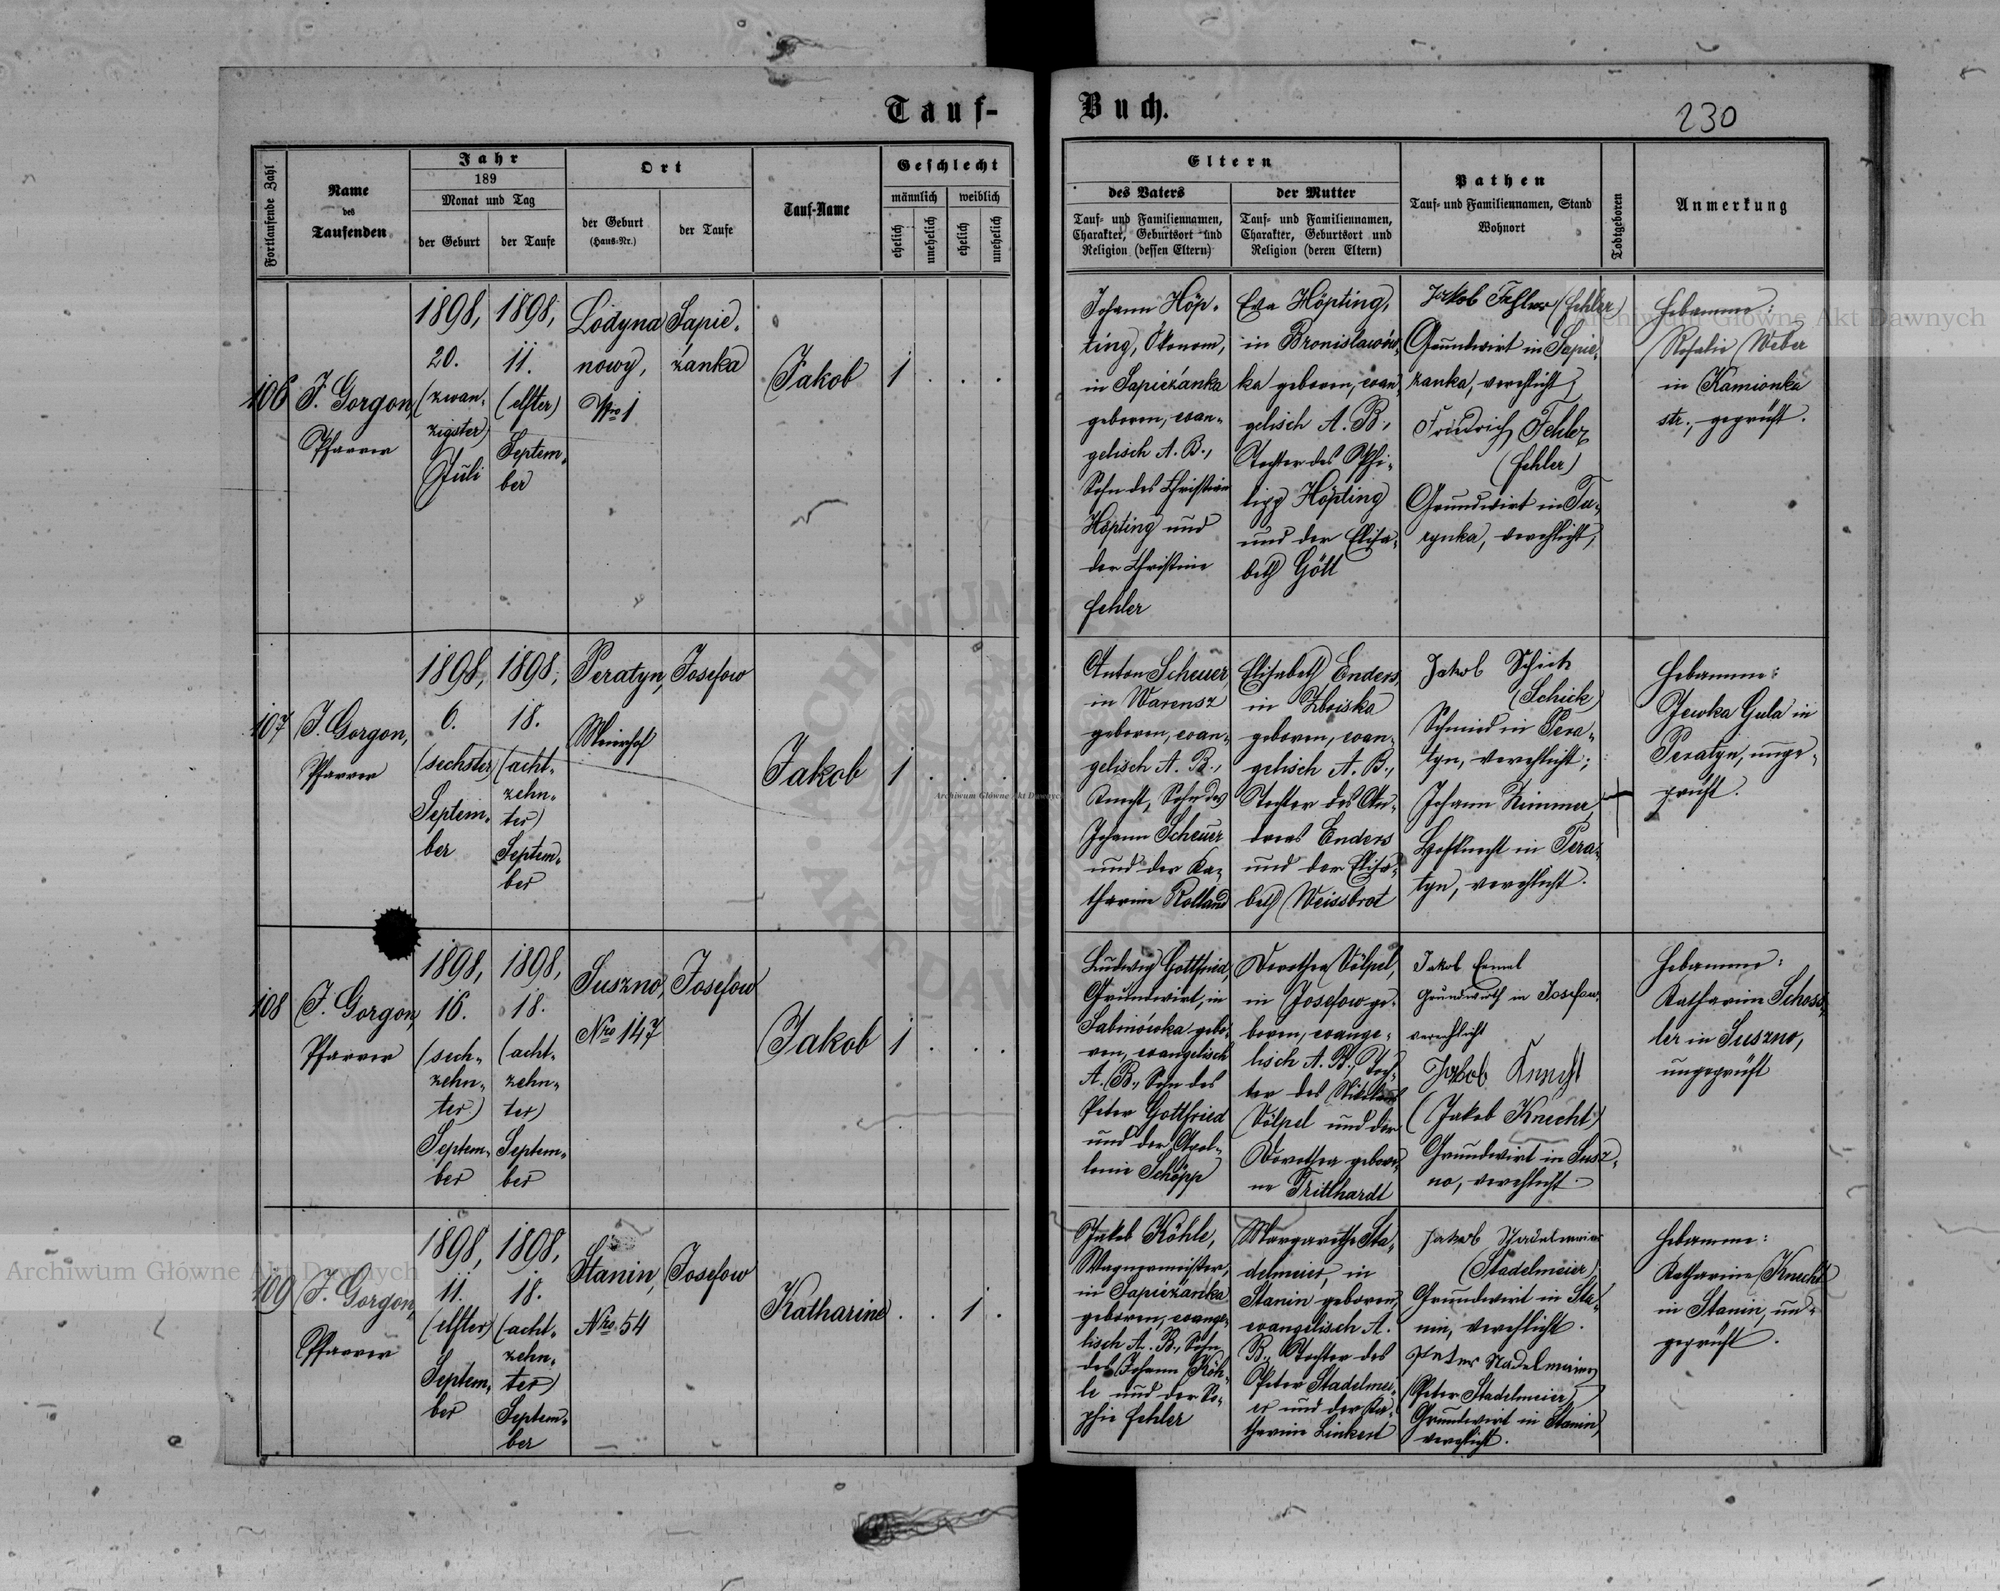 Tauf-
Buch.
230
Fortlaufende Zahl
Name
des
Taufenden
Jahr
189
Monat und Tag
der Geburt
der Taufe
Ort
der Geburt
(Haus-Nr.)
der Taufe
Tauf-Name
Geschlecht
männlich
weiblich
ehelich
unehelich
ehelich
unehelich
Eltern
des Vaters
Tauf- und Familiennamen,
Charakter, Geburtsort und
Religion (dessen Eltern)
der Mutter
Tauf- und Familiennamen,
Charakter, Geburtsort und
Religion (deren Eltern)
Pathen
Tauf- und Familiennamen, Stand
Wohnort
Todtgeboren
Anmerkung
106
J. Gorgon,
Pfarrer
1898,
20.
(zwan-
zigster)
Juli
1898,
11.
(elfter)
Septem-
ber
Lodyna
nowy,
Nro 1
Sapie-
żanka
Jakob
1
Johann Höp-
ting, Ökonom,
in Sapieżanka
geboren, evan-
gelisch A. B.,
Sohn des Christian
Höpting und
der Christine
Fehler
Eva Höpting,
in Bronisławów-
ka geboren, evan-
gelisch A. B.,
Tochter des Phi-
lipp Höpting
und der Elisa-
beth Göll
Jakob Fehler (Fehler)
Grundwirt in Sapie-
żanka, verehlicht;
Friedrich Fehler
(Fehler)
Grundwirt in Tu-
rynka, verehlicht,
Hebamme:
Rosalie Weber
in Kamionka
str., geprüft.
107
J. Gorgon,
Pfarrer
1898,
6.
(sechster)
Septem-
ber
1898,
18.
(acht-
zehn-
ter)
Septem-
ber
Peratyn,
Meierhof
Josefow
Jakob
1
Anton Scheuer,
in Warensz
geboren, evan-
gelisch A. B.,
Knecht, Sohn des
Johann Scheuer
und der Ka-
tharine Rolland
Elisabeth Enders,
in Zboiska
geboren, evan-
gelisch A. B.,
Tochter des An-
dreas Enders
und der Elisa-
beth Weissbrot
Jakob Schick
(Schick)
Schmied in Pera-
tyn, verehlicht;
Johann Zimmer,
Hofknecht in Pera-
tyn, verehlicht.
Hebamme:
Jewka Gula in
Peratyn, unge-
prüft.
108
J. Gorgon,
Pfarrer
1898,
16.
(sech-
zehn-
ter)
Septem-
ber
1898,
18.
(acht-
zehn-
ter)
Septem-
ber
Suszno,
Nro 147
Josefow
Jakob
1
Ludwig Gottfried,
Grundwirt, in
Sabinówka gebo-
ren, evangelisch
A. B., Sohn des
Peter Gottfried
und der Apol-
lonie Schöpp
Dorothea Völpel,
in Josefow ge-
boren, evange-
lisch A. B., Toch-
ter des Nikolaus
Völpel und der
Dorothea gebore-
ne Tritthardt
Jakob
Grundwirth in Josefow,
verehlicht
Jakob Knecht
(Jakob Knecht)
Grundwirt in Susz-
no, verehlicht.
Hebamme:
Katharine Schoss-
ler in Suszno,
ungeprüft
109
J. Gorgon,
Pfarrer
1898,
11.
(elfter)
Septem-
ber
1898,
18.
(acht-
zehn-
ter)
Septem-
ber
Stanin,
Nro 54
Josefow
Katharine
1
Jakob Köhle,
Wagnermeister,
in Sapieżanka
geboren, evange-
lisch A. B., Sohn
des Johann Köh-
le und der So-
phie Fehler
Margarethe Sta-
delmeier, in
Stanin geboren,
evangelisch A.
B., Tochter des
Peter Stadelmei-
er und der Ka-
tharine Linkert
Jakob Stadelmeier
(Stadelmeier)
Grundwirt in Sta-
nin, verehlicht.
Peter Stadelmeier
(Peter Stadelmeier)
Grundwirt in Stanin,
verehlicht.
Hebamme:
Katharine Knecht
in Stanin, un-
geprüft.
Archiwum Główne Akt Dawnych
Archiwum Główne Akt Dawnych
Archiwum Główne Akt Dawnych